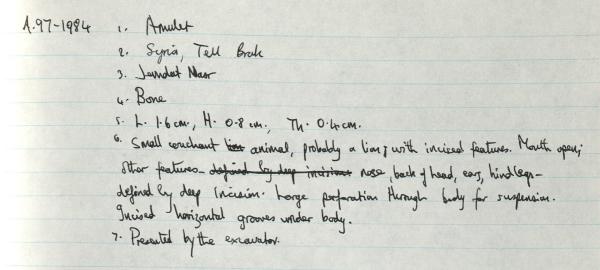 A.97-1984 1. Amulet
2. Syria, Tell Brak
3. Jemdet Nasr
4. Bone
5. L. 1.6 cm., H. 0.8 cm., Th. 0.4 cm.
6. Small couchant lion animal, probably a lion; with incised features. Mouth open;
other features - defined by deep incisions nose, back of head, ears, hindlegs -
defined by deep incision. Large perforation through body for suspension.
Incised horizontal grooves under body.
7. Presented by the excavator.